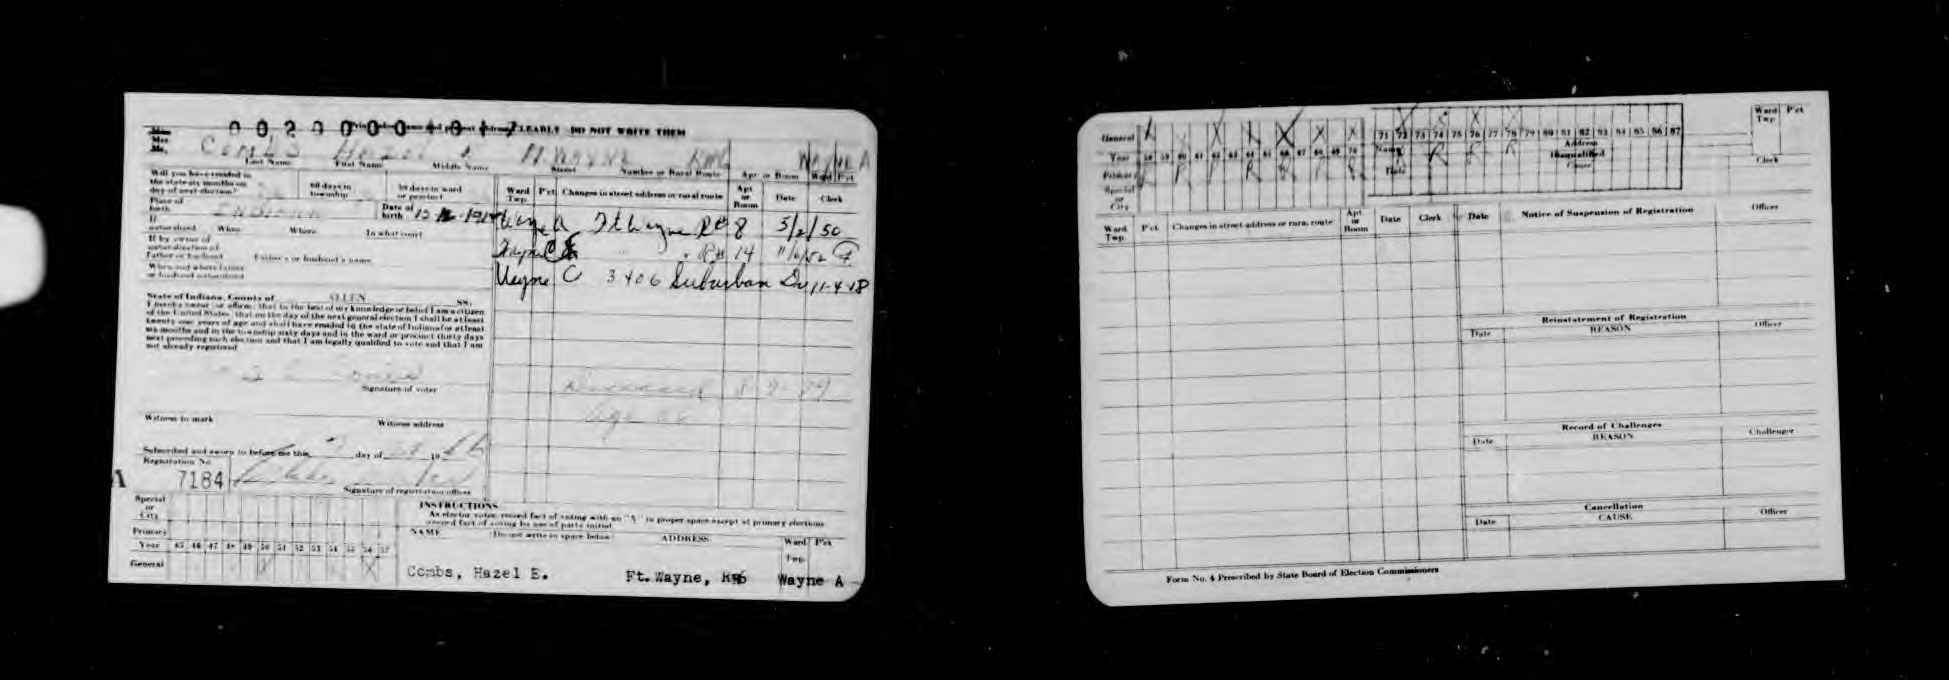 CLEARLY DO NOT WRITE THEM
Mrs.
Combs Hazel E Ft. Wayne
Last Name First Name Middle Name Street Number or Rural Route Apt or Room Ward P'ct
Will you have resided in
the state six months on
day of next election? 60 days in
township 30 days in ward
or precinct
Place of
birth INDIANA Date of
birth 12
If
naturalized When Where In what court
If by virtue of
naturalization of
Father or husband Father's or husband's name
When and where father
or husband naturalized
State of Indiana, County of ALLEN SS:
I hereby swear (or affirm) that to the best of my knowledge or belief I am a citizen
of the United States; that on the day of the next general election I shall be at least
twenty-one years of age and shall have resided in the state of Indiana for at least
six months and in the township sixty days and in the ward or precinct thirty days
next preceding such election and that I am legally qualified to vote and that I am
not already registered
Signature of voter
Witness to mark Witness address
Subscribed and sworn to before me this day of 19
Registration No.
A 7184
Signature of registration officer
Ward
Twp. P'ct Changes in street address or rural route Apt
or
Room Date Clerk
Wayne A Ft Wayne R# 8 5/2/50
Wayne C " R# 14 11/6/52
Wayne C 3406 Suburban Dr 11-4-58
Deceased
Age
Special
or
City
Primary
Year 45 46 47 48 49 50 51 52 53 54 55 56 57
General X X
INSTRUCTIONS
As elector votes, record fact of voting with an "X" in proper space except at primary elections
record fact of voting by use of party initial
NAME (Do not write in space below) ADDRESS Ward
Twp P'ct
Combs, Hazel E. Ft. Wayne, Wayne A
General X X X X X X X X X
Year 58 59 60 61 62 63 64 65 66 67 68 69 70 71 72 73 74 75 76 77 78 79 80 81 82 83 84 85 86 87
Primary R R R R R R R R R
Special
or
City
Name Address
Date Disqualified
Cause
Clerk
Ward
Twp P'ct
Ward
Twp. P'ct Changes in street address or rural route Apt
or
Room Date Clerk
Date Notice of Suspension of Registration Officer
Reinstatement of Registration
Date REASON Officer
Record of Challenges
Date REASON Challenger
Cancellation
Date CAUSE Officer
Form No. 4 Prescribed by State Board of Election Commissioners